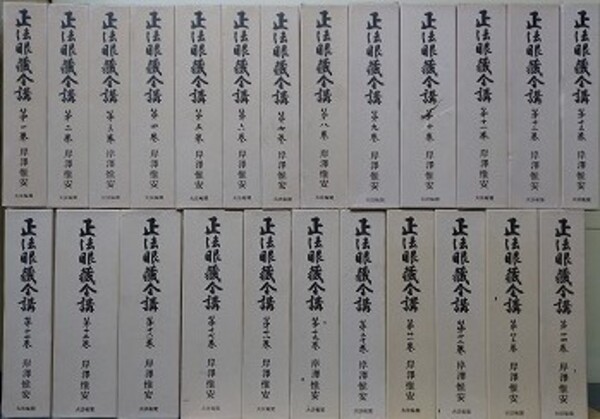 正法眼蔵全講 第一巻 岸澤惟安 大法輪閣
正法眼蔵全講 第二巻 岸澤惟安 大法輪閣
正法眼蔵全講 第三巻 岸澤惟安 大法輪閣
正法眼蔵全講 第四巻 岸澤惟安 大法輪閣
正法眼蔵全講 第五巻 岸澤惟安 大法輪閣
正法眼蔵全講 第六巻 岸澤惟安 大法輪閣
正法眼蔵全講 第七巻 岸澤惟安 大法輪閣
正法眼蔵全講 第八巻 岸澤惟安 大法輪閣
正法眼蔵全講 第九巻 岸澤惟安 大法輪閣
正法眼蔵全講 第十巻 岸澤惟安 大法輪閣
正法眼蔵全講 第十一巻 岸澤惟安 大法輪閣
正法眼蔵全講 第十二巻 岸澤惟安 大法輪閣
正法眼蔵全講 第十三巻 岸澤惟安 大法輪閣
正法眼蔵全講 第十四巻 岸澤惟安 大法輪閣
正法眼蔵全講 第十五巻 岸澤惟安 大法輪閣
正法眼蔵全講 岸澤惟安 大法輪閣
正法眼蔵全講 岸澤惟安 大法輪閣
正法眼蔵全講 岸澤惟安 大法輪閣
正法眼蔵全講 第十九巻 岸澤惟安 大法輪閣
正法眼蔵全講 第二十巻 岸澤惟安 大法輪閣
正法眼蔵全講 岸澤惟安 大法輪閣
正法眼蔵全講 岸澤惟安 大法輪閣
正法眼蔵全講 岸澤惟安 大法輪閣
正法眼蔵全講 岸澤惟安 大法輪閣